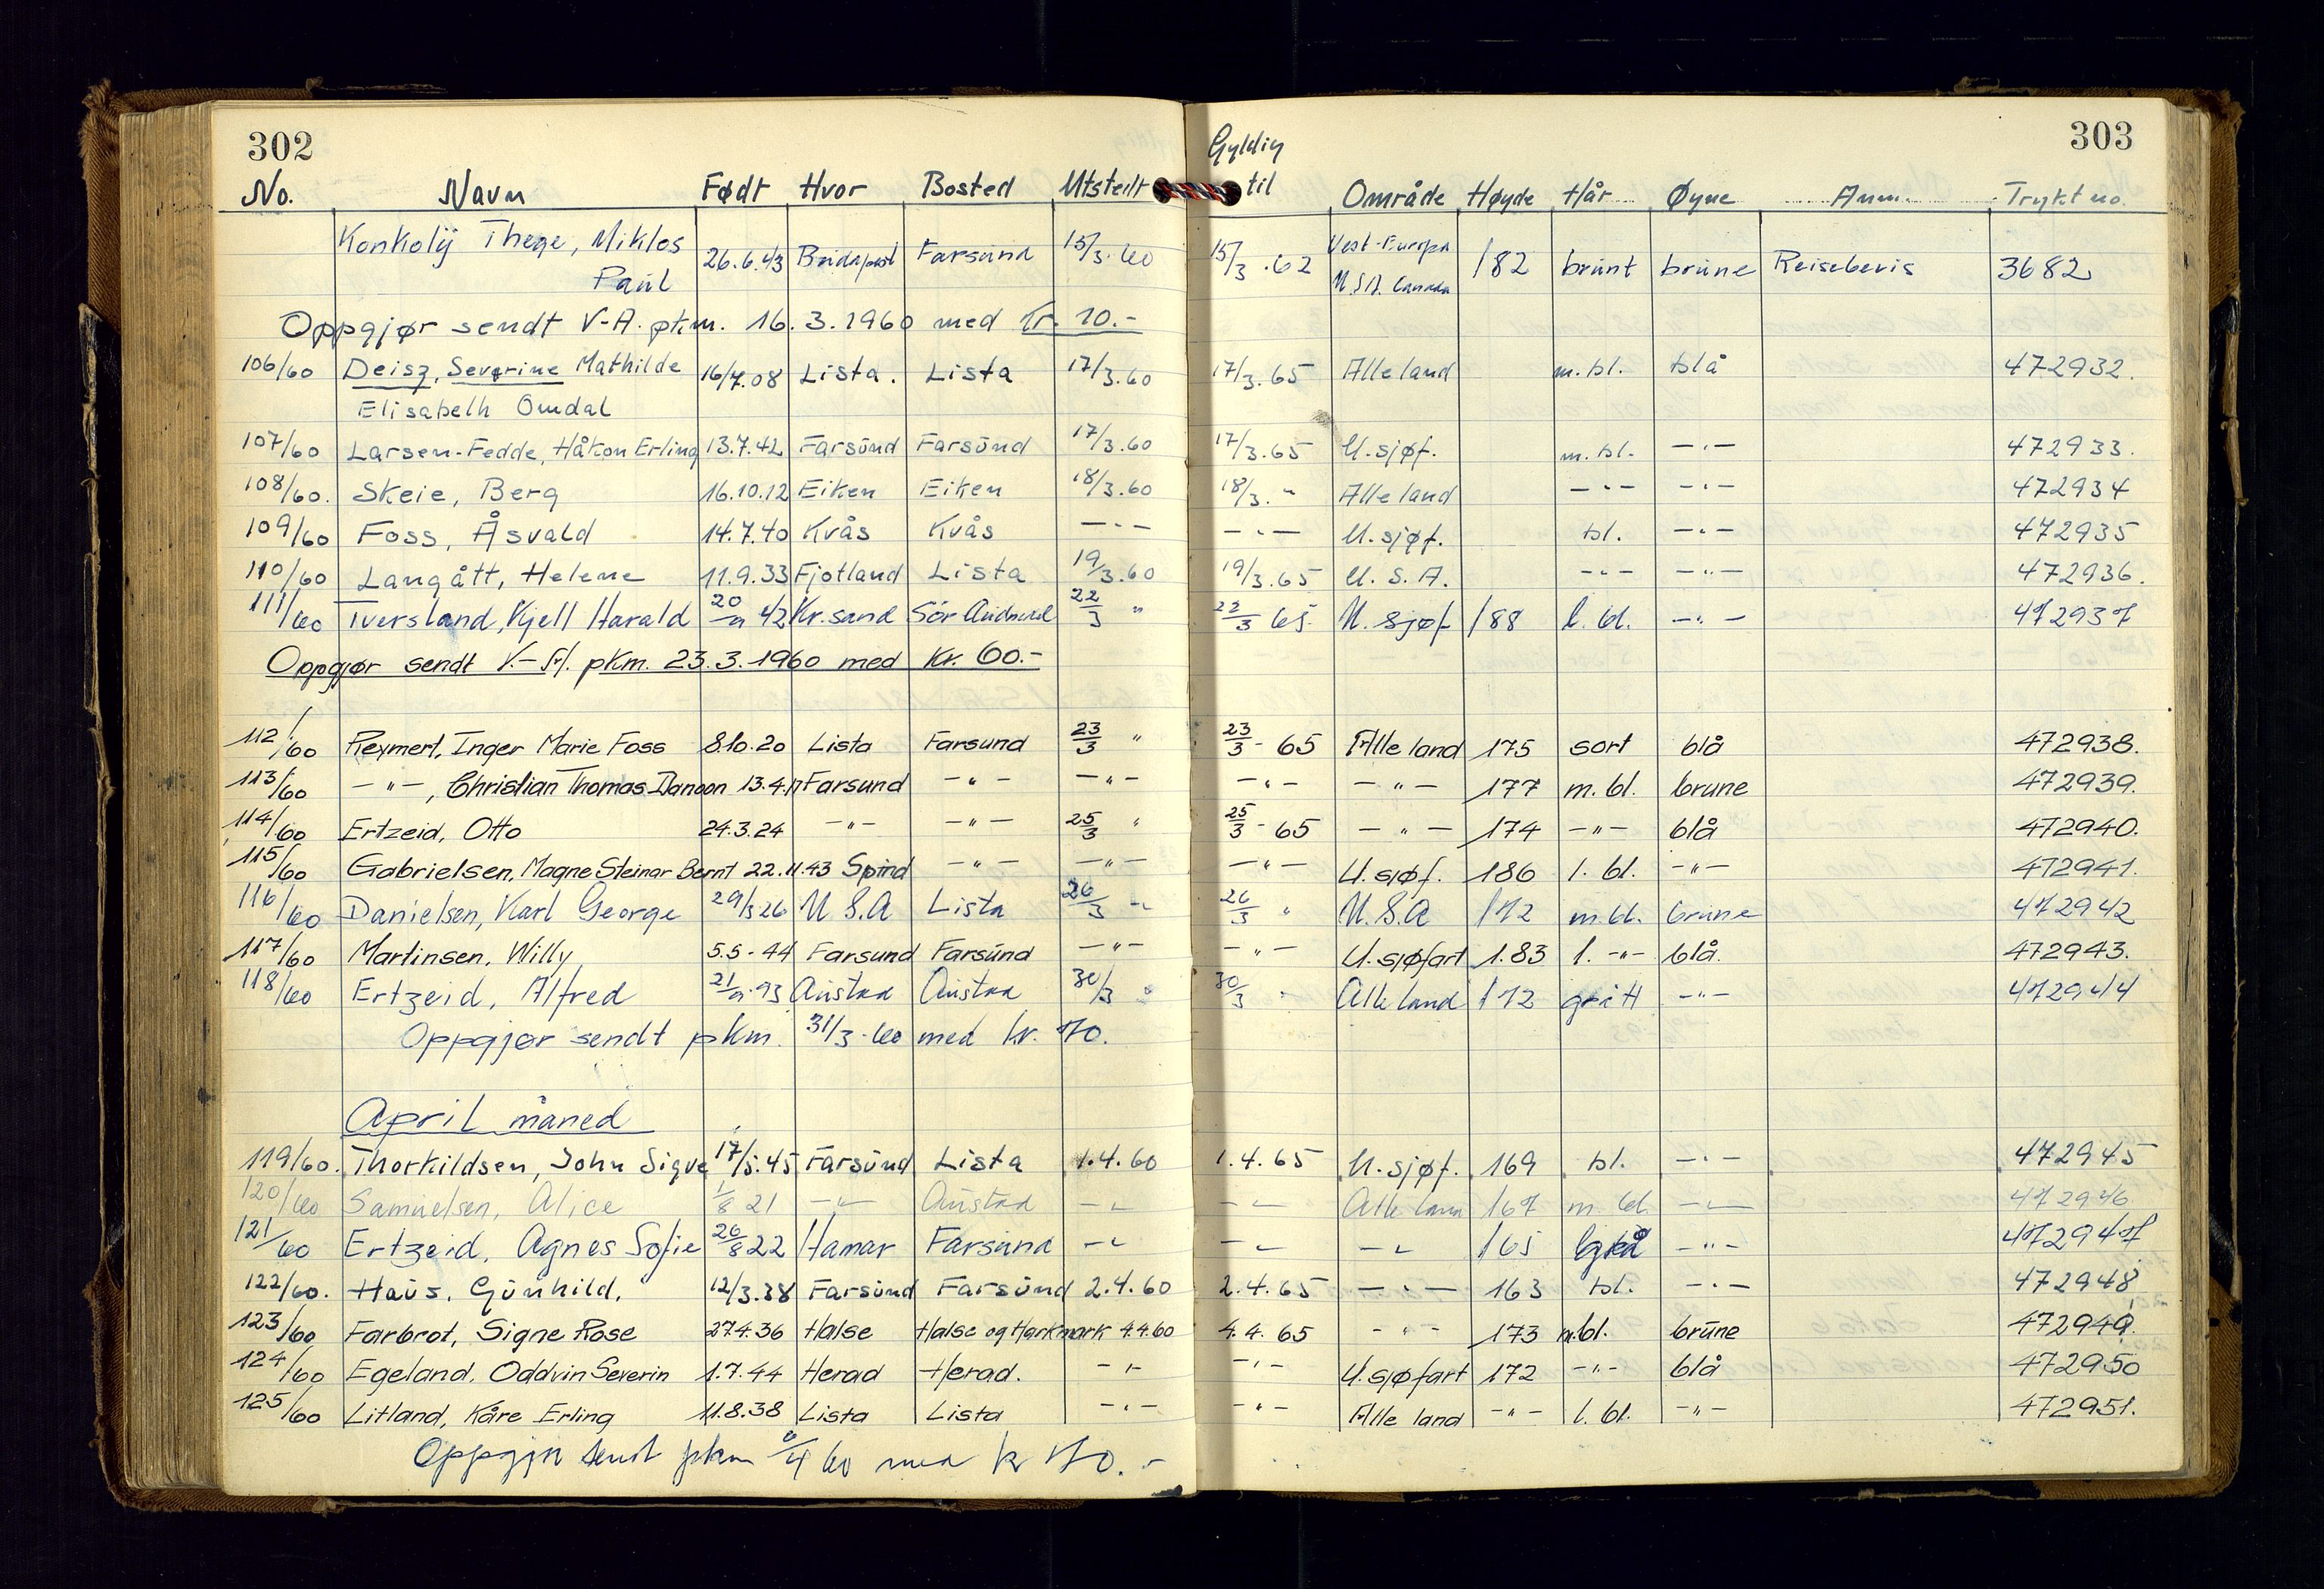 302
303
Gyldig
No. Navn Født Hvor Bosted Utstedt til Område Høyde Hår Øyne Anm. Trykt no.
Konkolÿ Thege, Miklos 26.6.43 Budapest Farsund 15/3.60 15/3.62 Vest-Europa 182 brunt brune Reisebevis 3682
Paul U.S.A. Canada
Oppgjør sendt V-A. pkm. 16.3.1960 med kr. 10.-
106/60 Deisz, Severine Mathilde 16/7.08 Lista. Lista 17/3.60 17/3.65 Alle land m.bl. blå 472932.
Elisabeth Omdal
107/60 Larsen-Fedde, Håkon Erling 13.7.42 Farsund Farsund 17/3.60 17/3.65 U.sjøf. m.bl. -"- 472933.
108/60. Skeie, Berg 16.10.12 Eiken Eiken 18/3.60 18/3. " Alle land -"- -"- 472934
109/60 Foss, Åsvald 14.7.40 Kvås Kvås -"- -"- U.sjøf. bl. -"- 472935
110/60 Langått, Helene 11.9.33 Fjotland Lista 19/3.60 19/3.65 U.S.A. -"- -"- 472936.
111/60 Tversland, Kjell Harald 20/9 42 Kr.sand Sör Audnedal 22/3 " 22/3 65. U.sjøf 188 l.bl. -"- 472937
Oppgjør sendt V.-A. pkm. 23.3.1960 med kr. 60.-
112/60 Reymert, Inger Marie Foss 8.10.20 Lista Farsund 23/3 " 23/3 - 65 Alle land 175 sort blå 472938.
113/60 -"-, Christian Thomas Danoon 13.4.17 Farsund -"- -"- -"- -"- 177 m.bl. brune 472939.
114/60 Ertzeid, Otto 24.3.24 -"- -"- 25/3 " 25/3 - 65 -"- 174 -"- blå 472940.
115/60 Gabrielsen, Magne Steinar Bernt 22.11.43 Spind -"- -"- -"- U.sjøf. 186 l.bl. -"- 472941.
116/60 Danielsen, Karl George 29/3 26 U.S.A Lista 26/3 " 26/3 " U.S.A 172 m.bl. brune 472942
117/60 Martinsen, Willy 5.5-44 Farsund Farsund -"- -"- U.sjøfart 1.83 l. -"- blå. 472943.
118/60 Ertzeid, Alfred 21/9.93 Austad Austad 30/3 " 30/3 " Alle land 172 grått -"- 472944
Oppgjør sendt pkm. 31/3-60 med kr. 70.
April måned
119/60. Thorkildsen, John Sigve 17/5.45 Farsund Lista 1.4.60 1.4.65 U.sjøf. 169 bl. -"- 472945
120/60 Samuelsen, Alice 1/8 21 -"- Austad -"- -"- Alle land 167 m.bl. -"- 472946
121/60 Ertzeid, Agnes Sofie 26/8 22 Hamar Farsund -"- -"- -"- 165 -"- 472947
122/60. Haus, Gunhild. 12/3.38 Farsund Farsund 2.4.60 2.4.65 -"- 163 bl. -"- 472948
123/60 Farbrot, Signe Rose 27.4.36 Halse Halse og Harkmark 4.4.60 4.4.65 -"- 173 m.bl. brune 472949.
124/60 Egeland, Oddvin Severin 1.7.44 Herad Herad. -"- -"- U.sjøfart 172 -"- blå 472950
125/60 Litland, Kåre Erling 11.8.38 Lista Lista -"- -"- Alle land -"- l.bl. -"- 472951.
Oppgjør sendt pkm 6/4 60 med kr 70.-